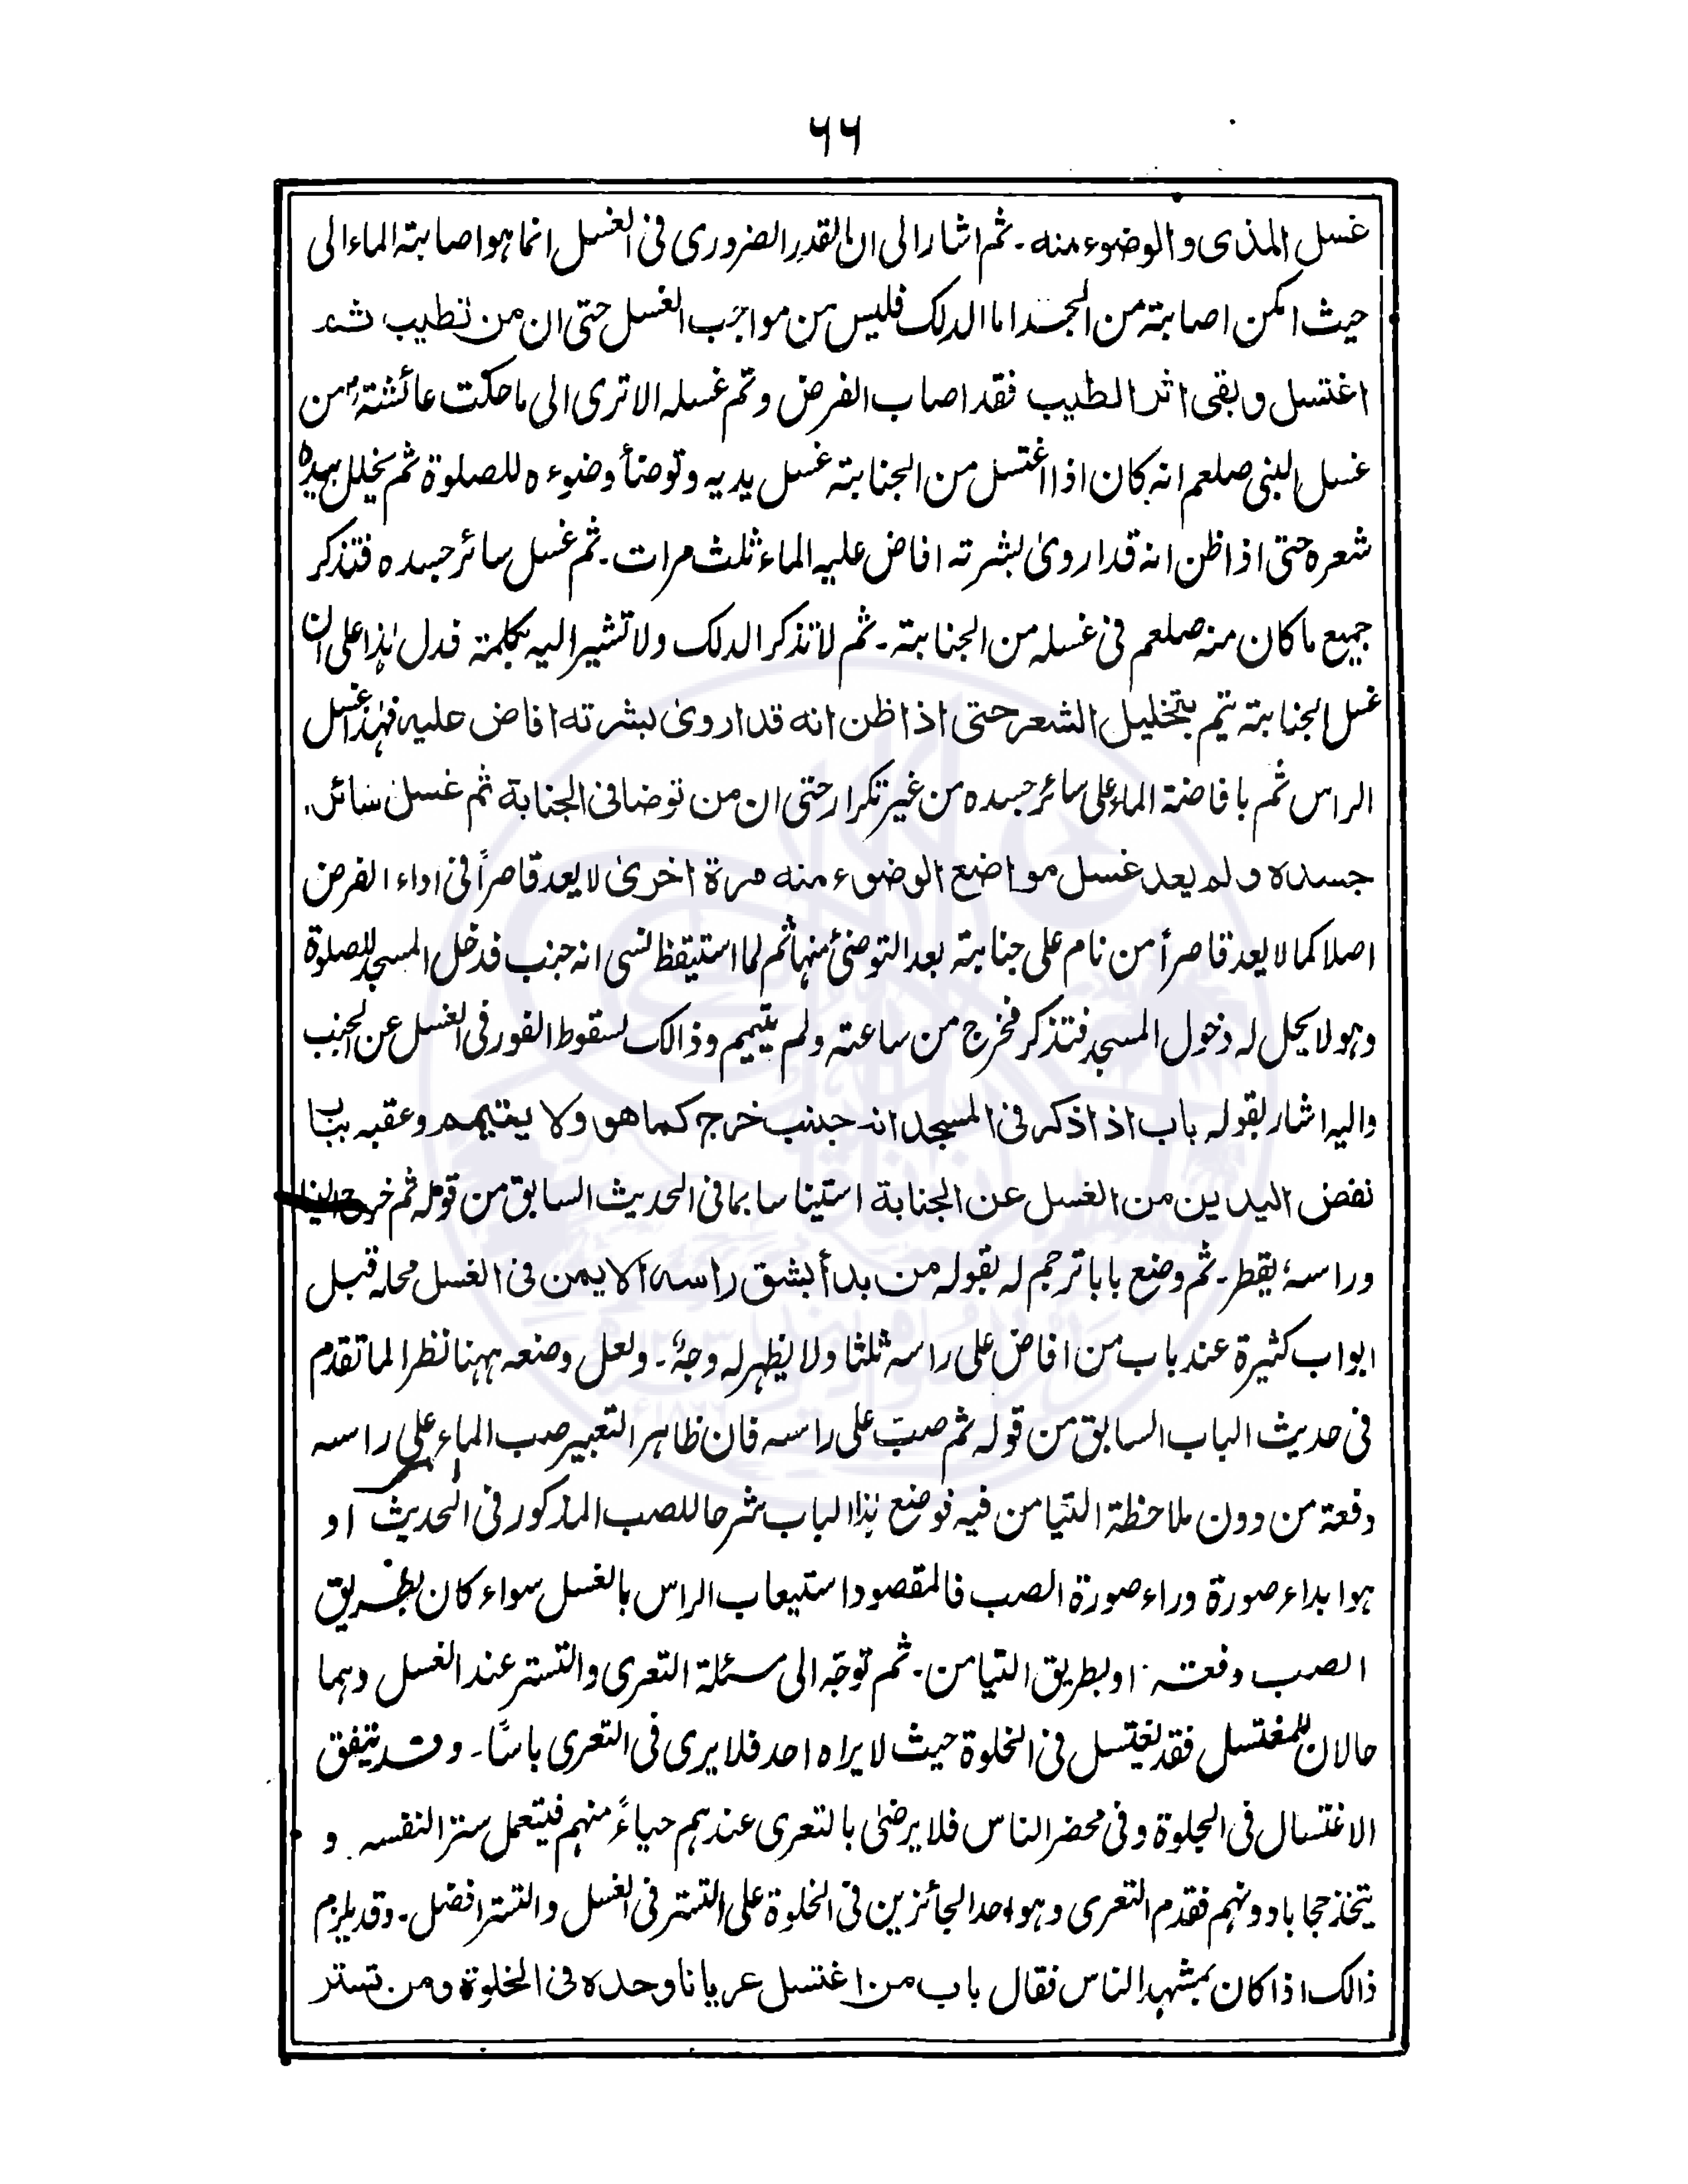 ٦٦
غسل المذى و الوضوء منه - ثم اشار الى ان القدر الضرورى فى الغسل انما هو اصابته الماء الى
حيث امكن اصابته من الجسد اما الدلك فليس من مواجب الغسل حتى ان من تطيب ثم
اغتسل و بقى اثر الطيب فقد اصاب الفرض و تم غسله الا ترى الى ما حكت عائشة رض من
غسل النبى صلعم انه كان اذا اغتسل من الجنابته غسل يديه و توضأ وضوءه للصلوة ثم يخلل بيده
شعره حتى اذا ظن انه قد اروىٰ بشرته افاض عليه الماء ثلث مرات - ثم غسل سائر جسده فتذكر
جميع ما كان منه صلعم فى غسله من الجنابته - ثم لا تذكر الدلك ولا تشير اليه بكلمته فدل هذا على ان
غسل الجنابته يتم بتخليل الشعر حتى اذا ظن انه قد اروىٰ بشرته افاض عليه فهذا غسل
الراس ثم بافاضة الماء على سائر جسده من غير تكرار حتى ان من توضا فى الجنابة ثم غسل سائر
جسده و لم يعد غسل مواضع الوضوء منه مرة اخرىٰ لا يعد قاصراً فى اداء الفرض
اصلا كما لا يعد قاصراً من نام على جنابته بعد التوضئ منها ثم لما استيقظ نسى انه جنب فدخل المسجد للصلوة
وهو لا يحل له دخول المسجد فتذكر فخرج من ساعته ولم يتيمم وذالك لسقوط الفور فى الغسل عن الجنب
واليه اشار بقوله باب اذا ذكر فى المسجد انه جنب خرج كما هو ولا يتيمم وعقبه بباب
نفض اليدين من الغسل عن الجنابة استيناسا بما فى الحديث السابق من قوله ثم خرج الينا
وراسه يقطر - ثم وضع بابا ترجم له بقوله من بدأ بشق راسه الايمن فى الغسل محله قبل
ابواب كثيرة عند باب من افاض على راسه ثلثا ولا يظهر له وجهٌ - ولعل وضعه ههنا نظرا لما تقدم
فى حديث الباب السابق من قوله ثم صبّ على راسه فان ظاهر التعبير صب الماء على راسه
دفعة من دون ملاحظة التيامن فيه فوضع هذا الباب شرحا للصب المذكور فى الحديث او
هو ابداء صورة وراء صورة الصب فالمقصود استيعاب الراس بالغسل سواء كان بطريق
الصب دفعته او بطريق التيامن - ثم توجّه الى مسئلة التعرى والتستر عند الغسل وهما
حالان للمغتسل فقد يغتسل فى الخلوة حيث لا يراه احد فلا يرى فى التعرى باسًا - وقد يتفق
الاغتسال فى الجلوة وفى محضر الناس فلا يرضىٰ بالتعرى عندهم حياءً منهم فيتعمل سترا لنفسه و
يتخذ حجابا دونهم فقدم التعرى وهو احد الجائزين فى الخلوة على التستر فى الغسل والتستر افضل - وقد يلزم
ذالك اذا كان بمشهد الناس فقال باب من اغتسل عريانا وحده فى الخلوة ومن تستر